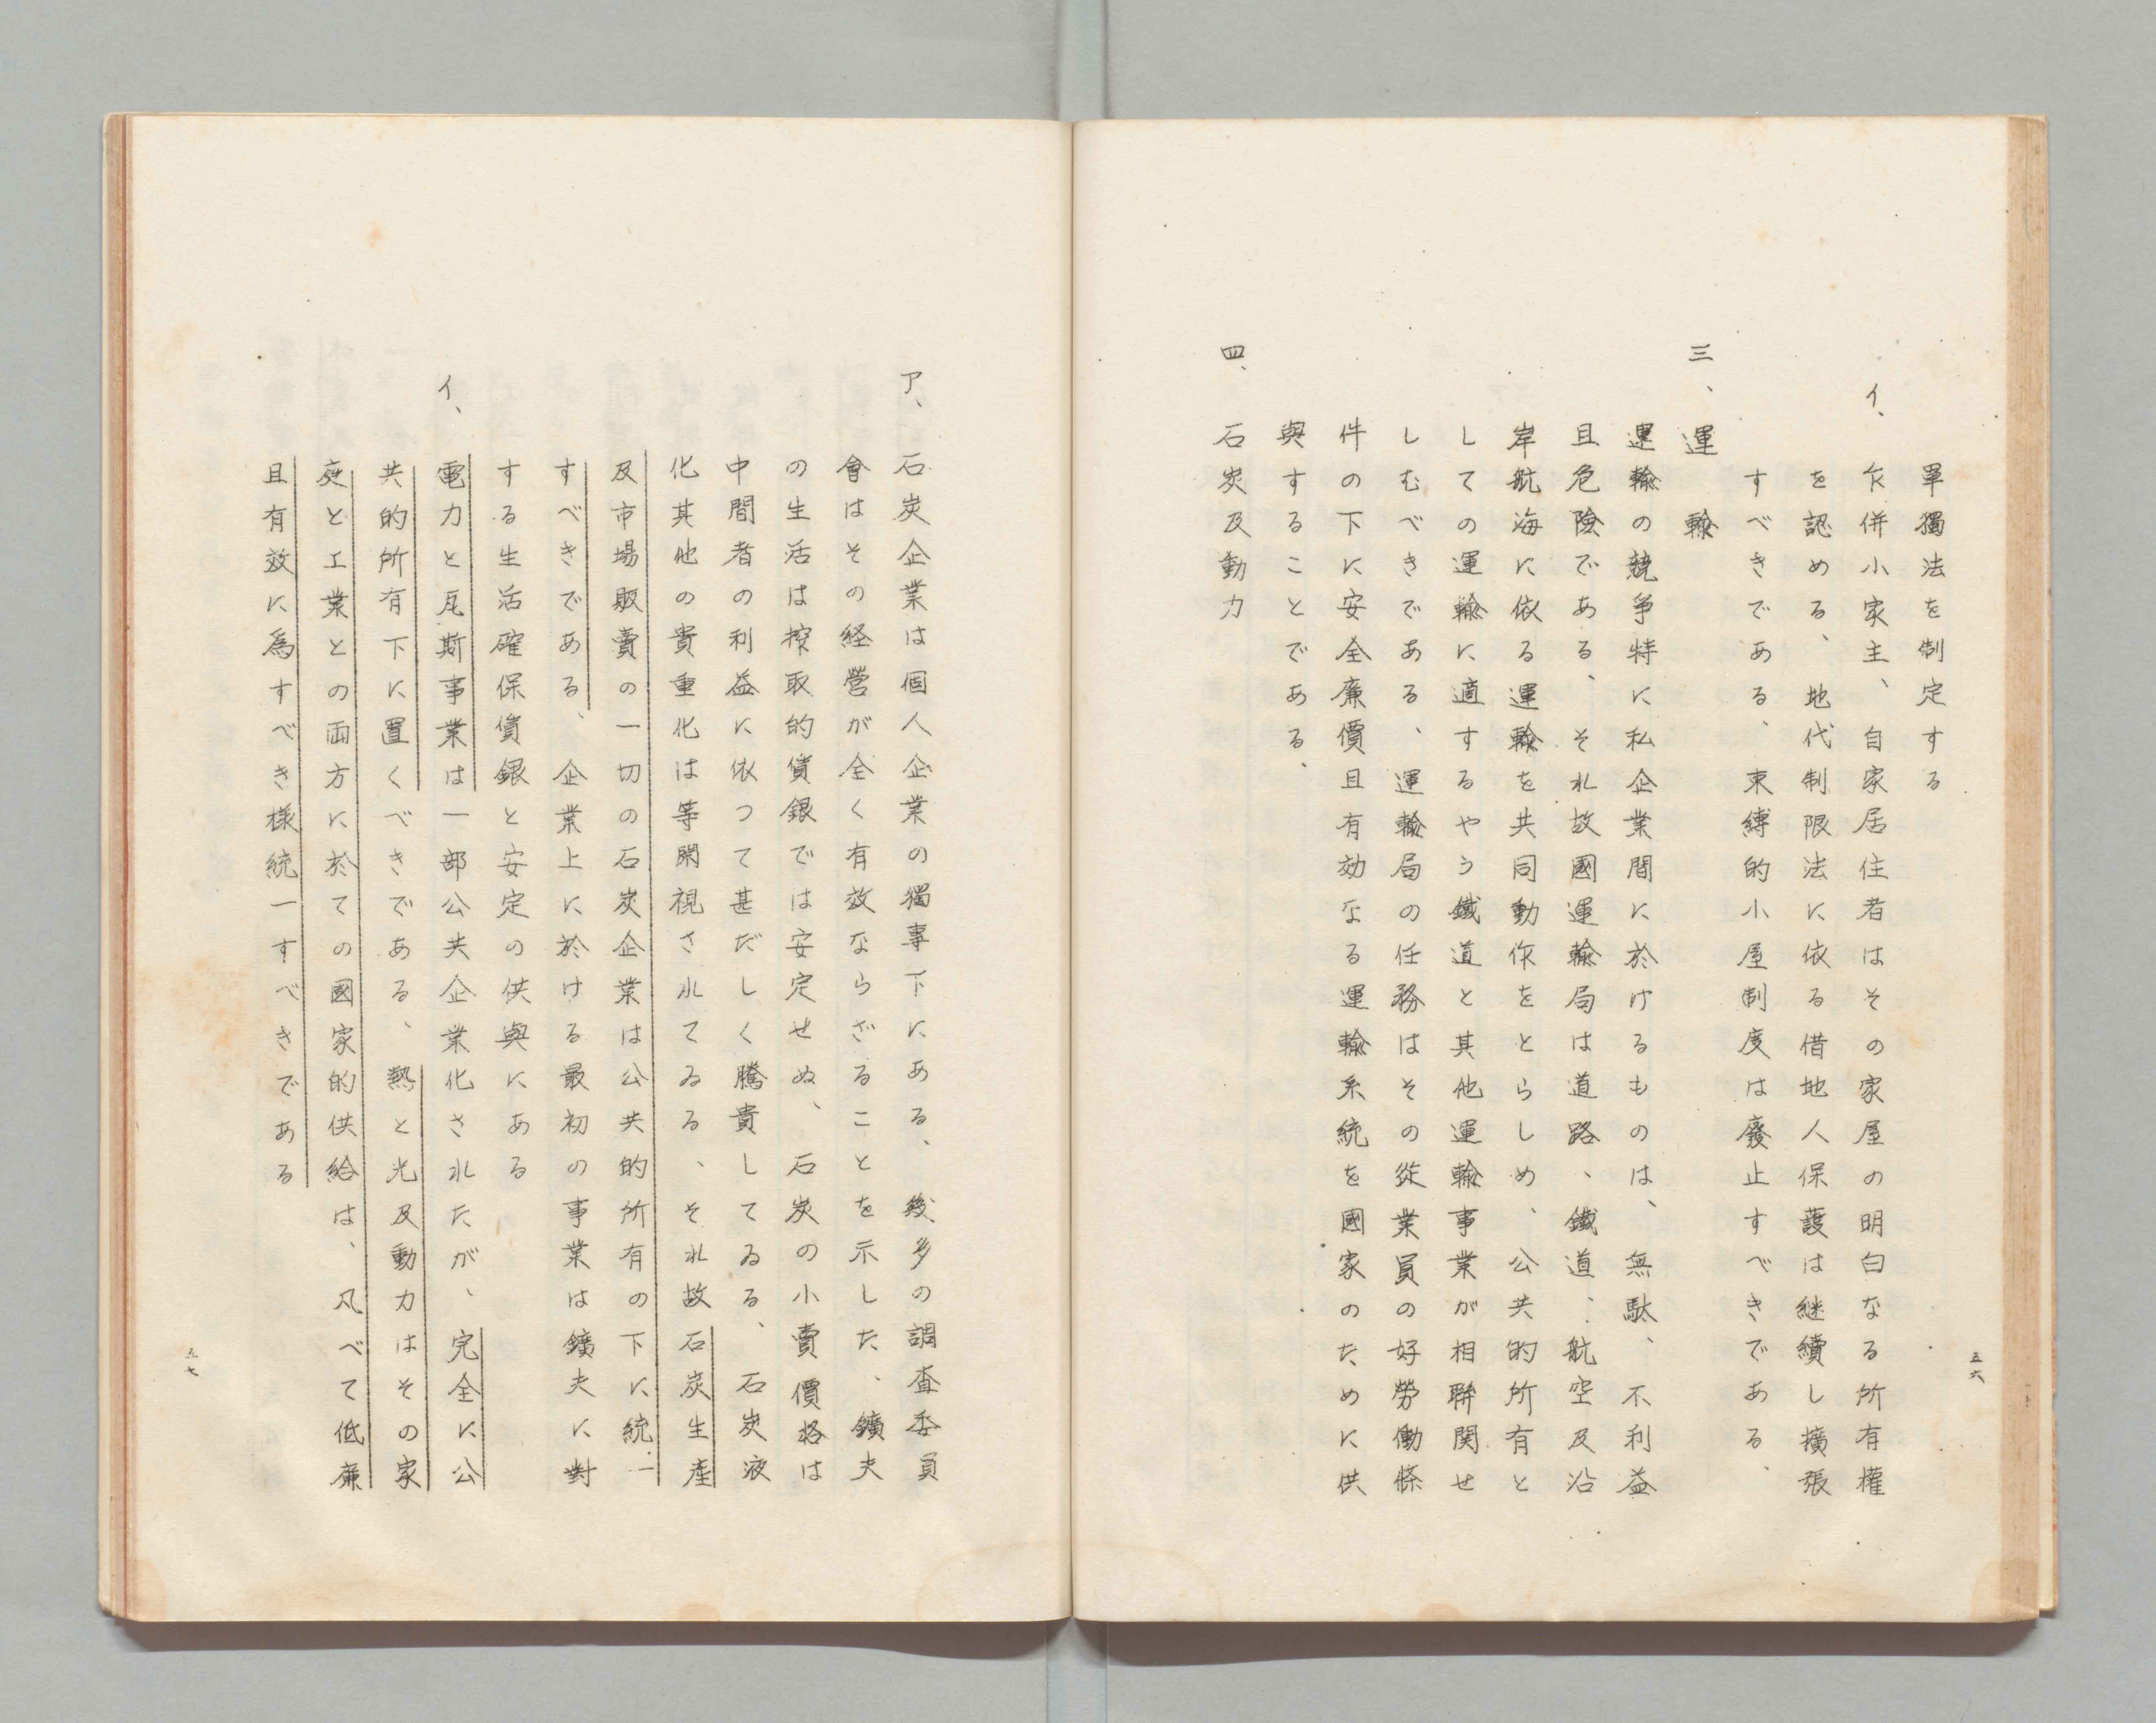 單獨法を制定する
イ、尓併小家主、自家居住者はその家屋の明白なる所有權
を認める、地代制限法に依る借地人保護は継續し擴張
すべきである、束縛的小屋制度は廢止すべきである、
三、運輸
運輸の競争特に私企業間に於けるものは、無駄、不利益
且危險である、それ故國運輸局は道路、鐵道、航空及沿
岸航海に依る運輸を共同動作をとらしめ、公共的所有と
しての運輸に適するやう鐵道と其他運輸事業が相聯関せ
しむべきである、運輸局の任務はその從業員の好勞働條
件の下に安全廉價且有効なる運輸系統を國家のために供
與することである、
四、石炭及動力
五六
ア、石炭企業は個人企業の獨專下にある、幾多の調査委員
會はその経営が全く有效ならざることを示した、鑛夫
の生活は搾取的賃銀では安定せぬ、石炭の小賣價格は
中間者の利益に依つて甚だしく騰貴してゐる、石炭液
化其他の貴重化は等閑視されてゐる、それ故石炭生産
及市場販賣の一切の石炭企業は公共的所有の下に統一
すべきである、企業上に於ける最初の事業は鑛夫に對
する生活確保賃銀と安定の供與にある
イ、電力と瓦斯事業は一部公共企業化されたが、完全に公
共的所有下に置くべきである、熱と光及動力はその家
庭と工業との両方に於ての國家的供給は、凡べて低廉
且有效に爲すべき樣統一すべきである
五七